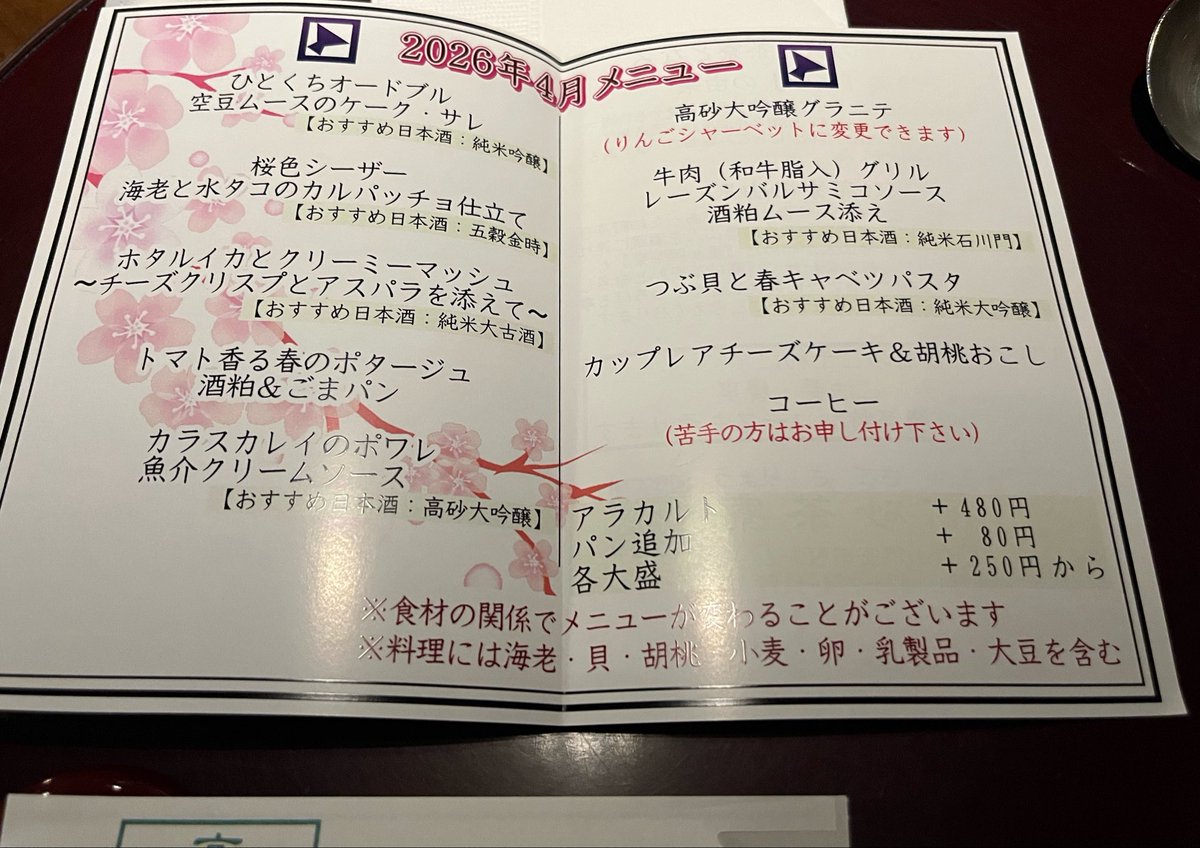 2026年4月メニュー
ひとくちオードブル
空豆ムースのケーク・サレ
【おすすめ日本酒：純米吟醸】
桜色シーザー
海老と水タコのカルパッチョ仕立て
【おすすめ日本酒：五穀金時】
ホタルイカとクリーミーマッシュ
～チーズクリスプとアスパラを添えて～
【おすすめ日本酒：純米大古酒】
トマト香る春のポタージュ
酒粕＆ごまパン
カラスカレイのポワレ
魚介クリームソース
【おすすめ日本酒：高砂大吟醸】
高砂大吟醸グラニテ
(りんごシャーベットに変更できます)
牛肉（和牛脂入）グリル
レーズンバルサミコソース
酒粕ムース添え
【おすすめ日本酒：純米石川門】
つぶ貝と春キャベツパスタ
【おすすめ日本酒：純米大吟醸】
カップレアチーズケーキ＆胡桃おこし
コーヒー
(苦手の方はお申し付け下さい)
アラカルト +480円
パン追加 + 80円
各大盛 +250円から
※食材の関係でメニューが変わることがございます
※料理には海老・貝・胡桃 小麦・卵・乳製品・大豆を含む